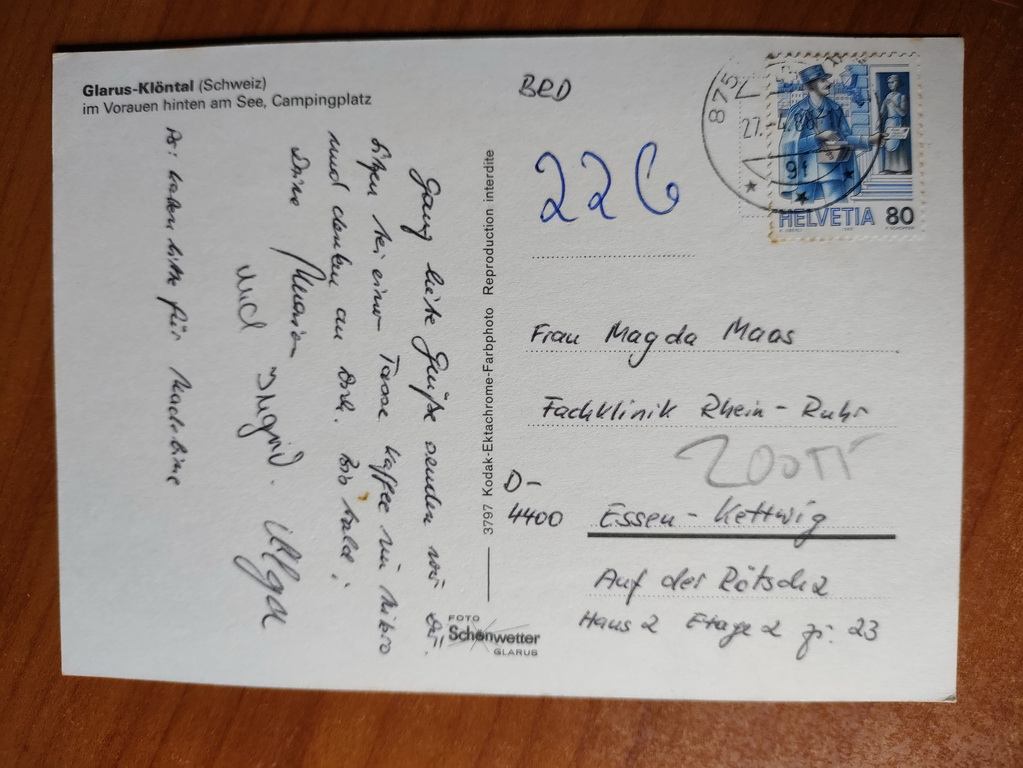 Glarus-Klöntal (Schweiz)
im Vorauen hinten am See, Campingplatz
Ganz liebe Grüße senden wir Dir.
Sitzen bei einer Tasse Kaffee im
und denken an Dich. Bis bald!
Deine
und Ingrid. Olga
Ps: haben bitte für
3797 Kodak-Ektachrome-Farbphoto Reproduction interdite
FOTO
Schönwetter
GLARUS
BRD
226
875
27.-4.88-
9f
HELVETIA 80
Frau Magda Maas
Fachklinik Rhein-Ruhr
200 Π
D-
4400 Essen-Kettwig
Auf der Rötsch 2
Haus 2 Etage 2 Zi. 23